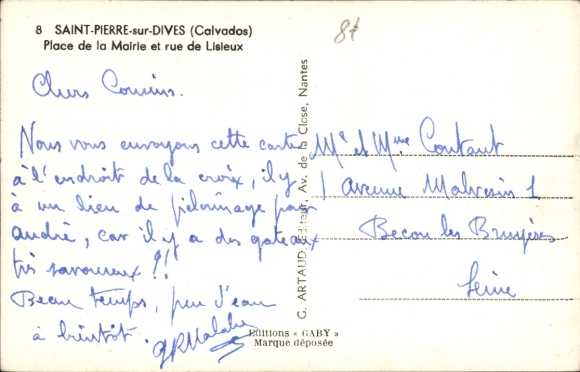 8 SAINT-PIERRE-sur-DIVES (Calvados)
Place de la Mairie et rue de Lisieux
Chers Cousins.
Nous vous envoyons cette carte
à l'endroit de la croix, il y
à un lieu de pèlerinage pour
andré, car il y a des gateaux
très savoureux !!
Beau temps, peu d'eau
à bientôt.
C. ARTAUD, Editeur, Av. de la Close, Nantes
Mr et Mme Coutant
1 Avenue Malvesin 1
Becon les Bruyères
Seine
Editions « GABY »
Marque déposée